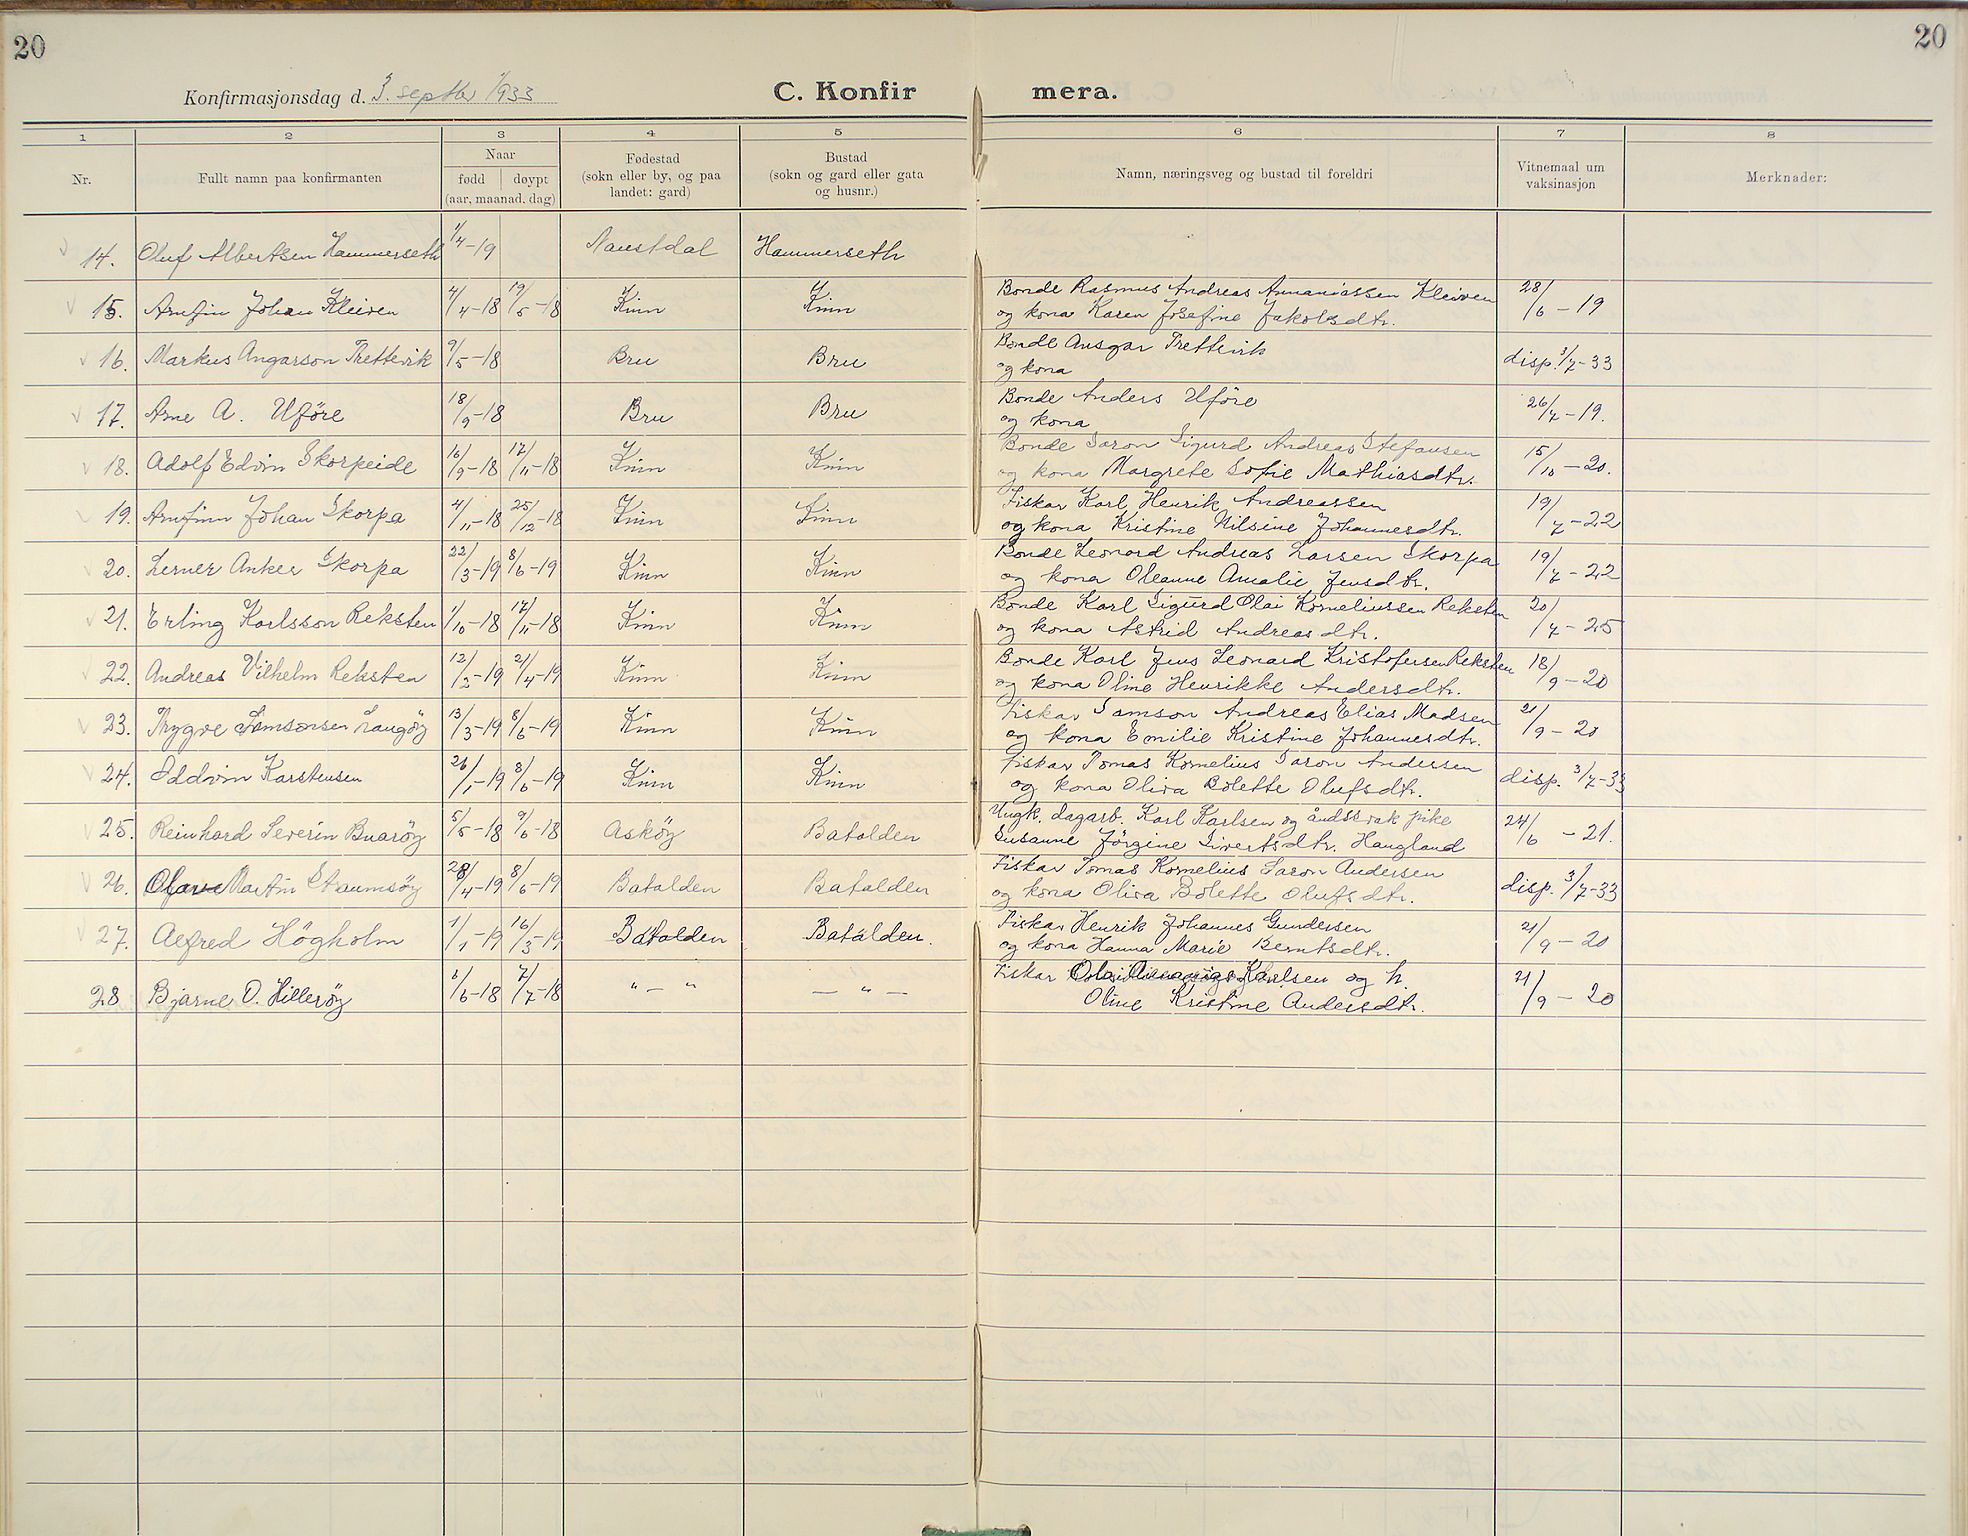 20
20
Konfirmasjonsdag d. 3. septbr 1933
C. Konfir mera.
1 2 3 4 5 6 7 8
Nr.
Fullt namn paa konfirmanten
Naar
fødd døypt
(aar, maanad, dag)
Fødestad
(sokn eller by, og paa
landet: gard)
Bustad
(sokn og gard eller gata
og husnr.)
Namn, næringsveg og bustad til foreldri
Vitnemaal um
vaksinasjon
Merknader:
14. Oluf Albertsen Hammerseth 1/4-19 Naustdal Hammerseth
15. Arnfin Johan Kleiven 4/4-18 19/5-18 Kinn Kinn Bonde Rasmus Andreas Annaniassen Kleiven 28/6-19
og kona Karen Josefine Jakobsdtr.
16. Markus Angarson Trettevik 9/5-18 Bru Bru Bonde Ansgar Trettevik disp. 3/7-33
og kona
17. Arne A. Uföre 18/9-18 Bru Bru Bonde Anders Uföre 26/7-19.
og kona
18. Adolf Edvin Skorpeide 16/9-18 17/11-18 Kinn Kinn Bonde Saron Sigurd Andreas Stefansen 15/10-20.
og kona Margrete Sofie Mathiasdtr.
19. Arnfinn Johan Skorpa 4/11-18 25/12-18 Kinn Kinn Fiskar Karl Henrik Andreassen 19/7-22
og kona Kristine Nilsine Johannesdtr.
20. Lerner Anker Skorpa 22/3-19 8/6-19 Kinn Kinn Bonde Leonard Andreas Larsen Skorpa 19/7-22
og kona Oleanne Amalie Jensdtr.
21. Erling Karlsson Reksten 1/10-18 17/11-18 Kinn Kinn Bonde Karl Sigurd Olai Korneliussen Reksten 20/7-25
og kona Astrid Andreasdtr.
22. Andreas Vilhelm Reksten 12/2-19 21/4-19 Kinn Kinn Bonde Karl Jens Leonard Kristofersen Reksten 18/9-20
og kona Oline Henrikke Andersdtr.
23. Trygve Samsonsen Langöy 13/3-19 8/6-19 Kinn Kinn Fiskar Samson Andreas Elias Madsen 21/9-20
og kona Emilie Kristine Johannesdtr.
24. Oddvin Karstensen 26/1-19 8/6-19 Kinn Kinn Fiskar Tomas Kornelius Saron Andersen disp. 3/7-33
og kona Oliva Bolette Olufsdtr.
25. Reinhard Severin Buaröy 5/5-18 9/6-18 Asköy Batalden Ungk. dagarb. Karl Karlsen og åndssvak pike 24/6-21.
Susanne Jörgine Sivertsdtr. Haugland
26. Olave Martin Straumsöy 28/4-19 8/6-19 Batalden Batalden Fiskar Tomas Kornelius Saron Andersen disp. 3/7-33
og kona Oliva Bolette Olufsdtr.
27. Alfred Högholm 1/1-19 16/3-19 Batalden Batalden. Fiskar Henrik Johannes Gundersen 21/9-20
og kona Hanna Marie Berntsdtr.
28. Bjarne O. Hilleröy 6/6-18 7/7-18 " — " — " — Fiskar Karlsen og h. 21/9-20
Oline Kristine Andersdtr.